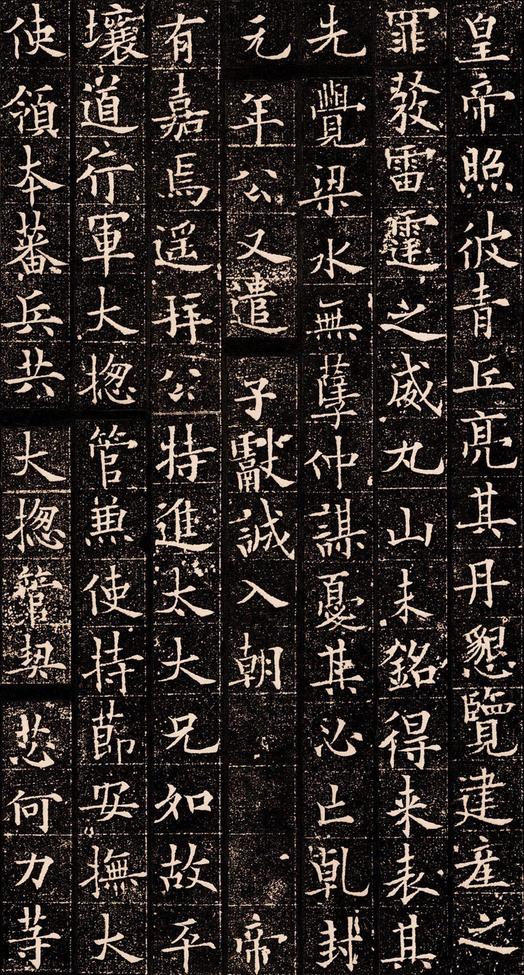 皇帝照彼青丘亮其丹懇覽建産之
罪發雷霆之威丸山未銘得来表其
先覺梁水無孽仲謀憂其必亡乹封
元年公又遣子獻誠入朝帝
有嘉焉遥拝公特進太大兄如故平
壤道行軍大揔管兼使持莭安撫大
使領本蕃兵共大揔管契苾何力䓁